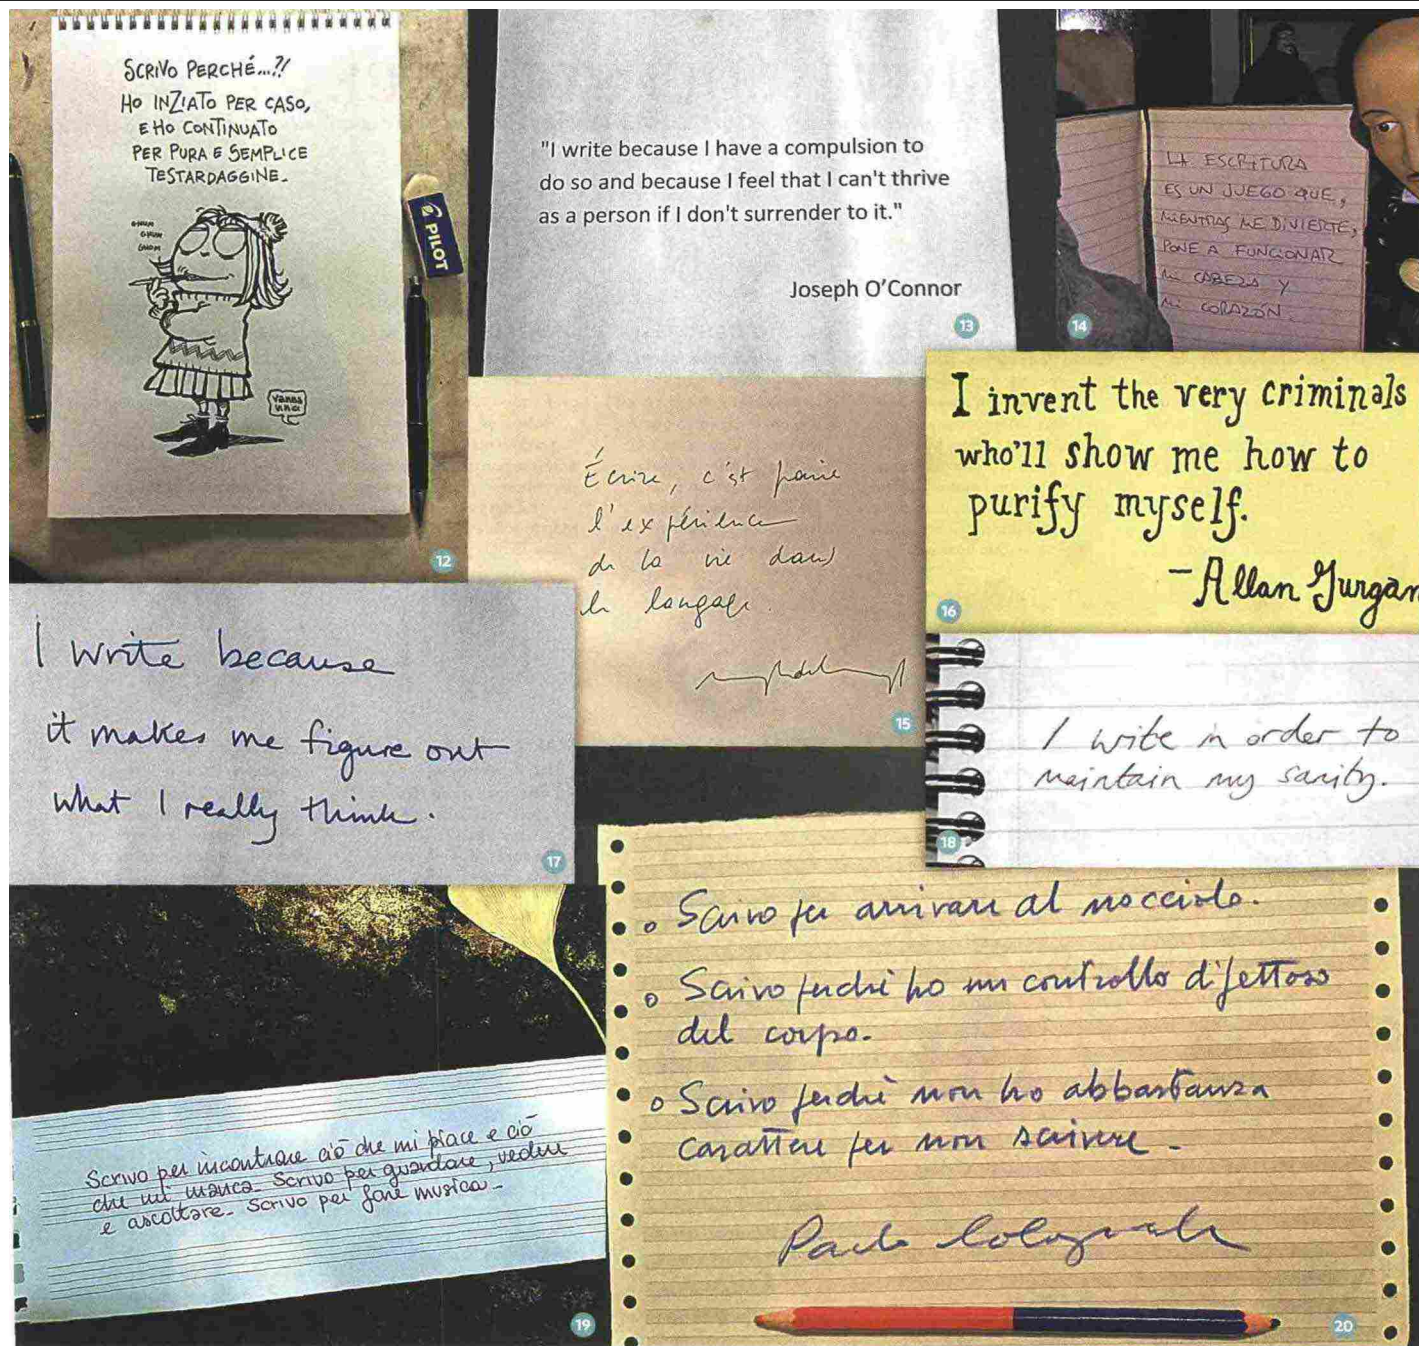 SCRIVO PERCHÉ...?!
HO INZIATO PER CASO,
E HO CONTINUATO
PER PURA E SEMPLICE
TESTARDAGGINE.
GNUM
GNUM
GNOM
PILOT
12
"I write because I have a compulsion to
do so and because I feel that I can't thrive
as a person if I don't surrender to it."
Joseph O'Connor
13
LA ESCRITURA
ES UN JUEGO QUE,
MIENTRAS ME DIVIERTE,
PONE A FUNCIONAR
MI CABEZA Y
MI CORAZÓN.
14
Écrire, c'est faire
l'expérience
de la vie dans
le langage.
15
I invent the very criminals
who'll show me how to
purify myself.
-Allan Gurgan
16
I write because
it makes me figure out
what I really think.
17
I write in order to
maintain my sanity.
18
Scrivo per incontrare ciò che mi piace e ciò
che mi manca. Scrivo per guardare, vedere
e ascoltare. Scrivo per fare musica.
19
Scrivo per arrivare al nocciolo.
Scrivo perché ho un controllo difettoso
del corpo.
Scrivo perché non ho abbastanza
carattere per non scrivere.
20